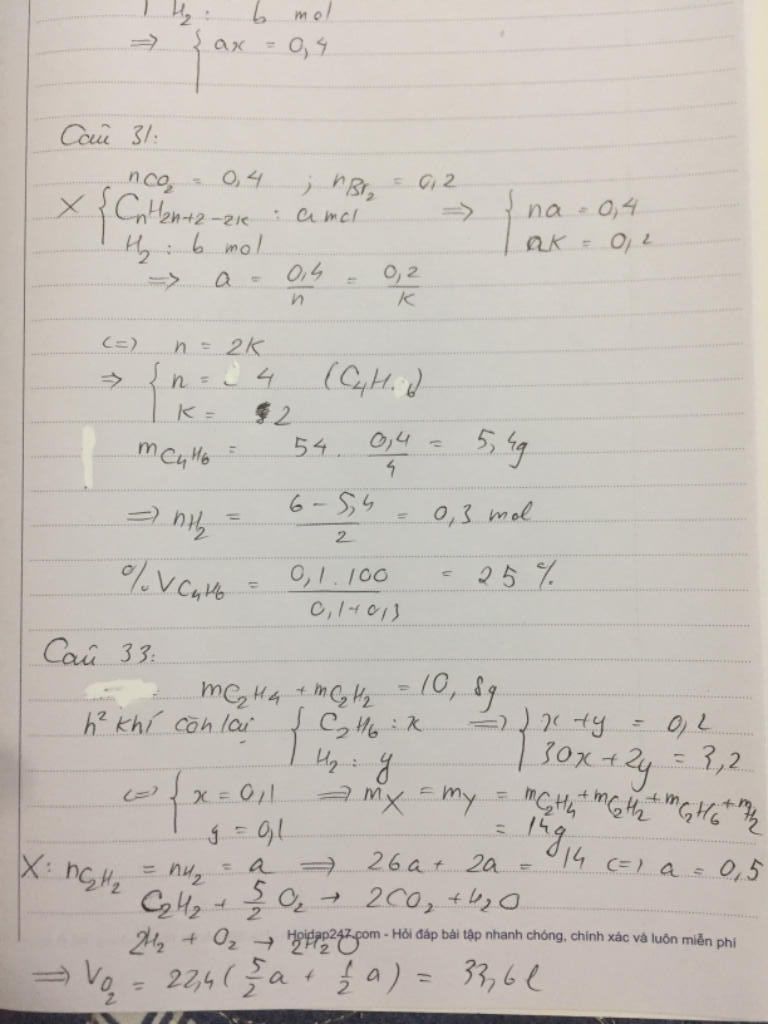 H₂ : b mol
=> { ax = 0,4
Câu 31:
nCO₂ = 0,4 ; nBr₂ = 0,2
X { CnH2n+2-2k : a mol => { na = 0,4
H₂ : b mol ak = 0,2
=> a = 0,4/n = 0,2/k
(=) n = 2k
=> { n = 4 (C₄H₆)
k = 2
mC₄H₆ = 54 . 0,4/4 = 5,4g
=> nH₂ = (6 - 5,4)/2 = 0,3 mol
%VC₄H₆ = 0,1.100/(0,1+0,3) = 25%
Câu 33:
mC₂H₄ + mC₂H₂ = 10,8g
h² khí còn lại { C₂H₆ : x => { x + y = 0,2
H₂ : y 30x + 2y = 3,2
(=) { x = 0,1 => mX = mY = mC₂H₄ + mC₂H₂ + mC₂H₆ + mH₂
y = 0,1 = 14g
X: nC₂H₂ = nH₂ = a => 26a + 2a = 14 (=) a = 0,5
C₂H₂ + 5/2 O₂ → 2CO₂ + H₂O
2H₂ + O₂ → 2H₂O
Hoidap247.com - Hỏi đáp bài tập nhanh chóng, chính xác và luôn miễn phí
=> VO₂ = 22,4 ( 5/2 a + 1/2 a ) = 33,6 l